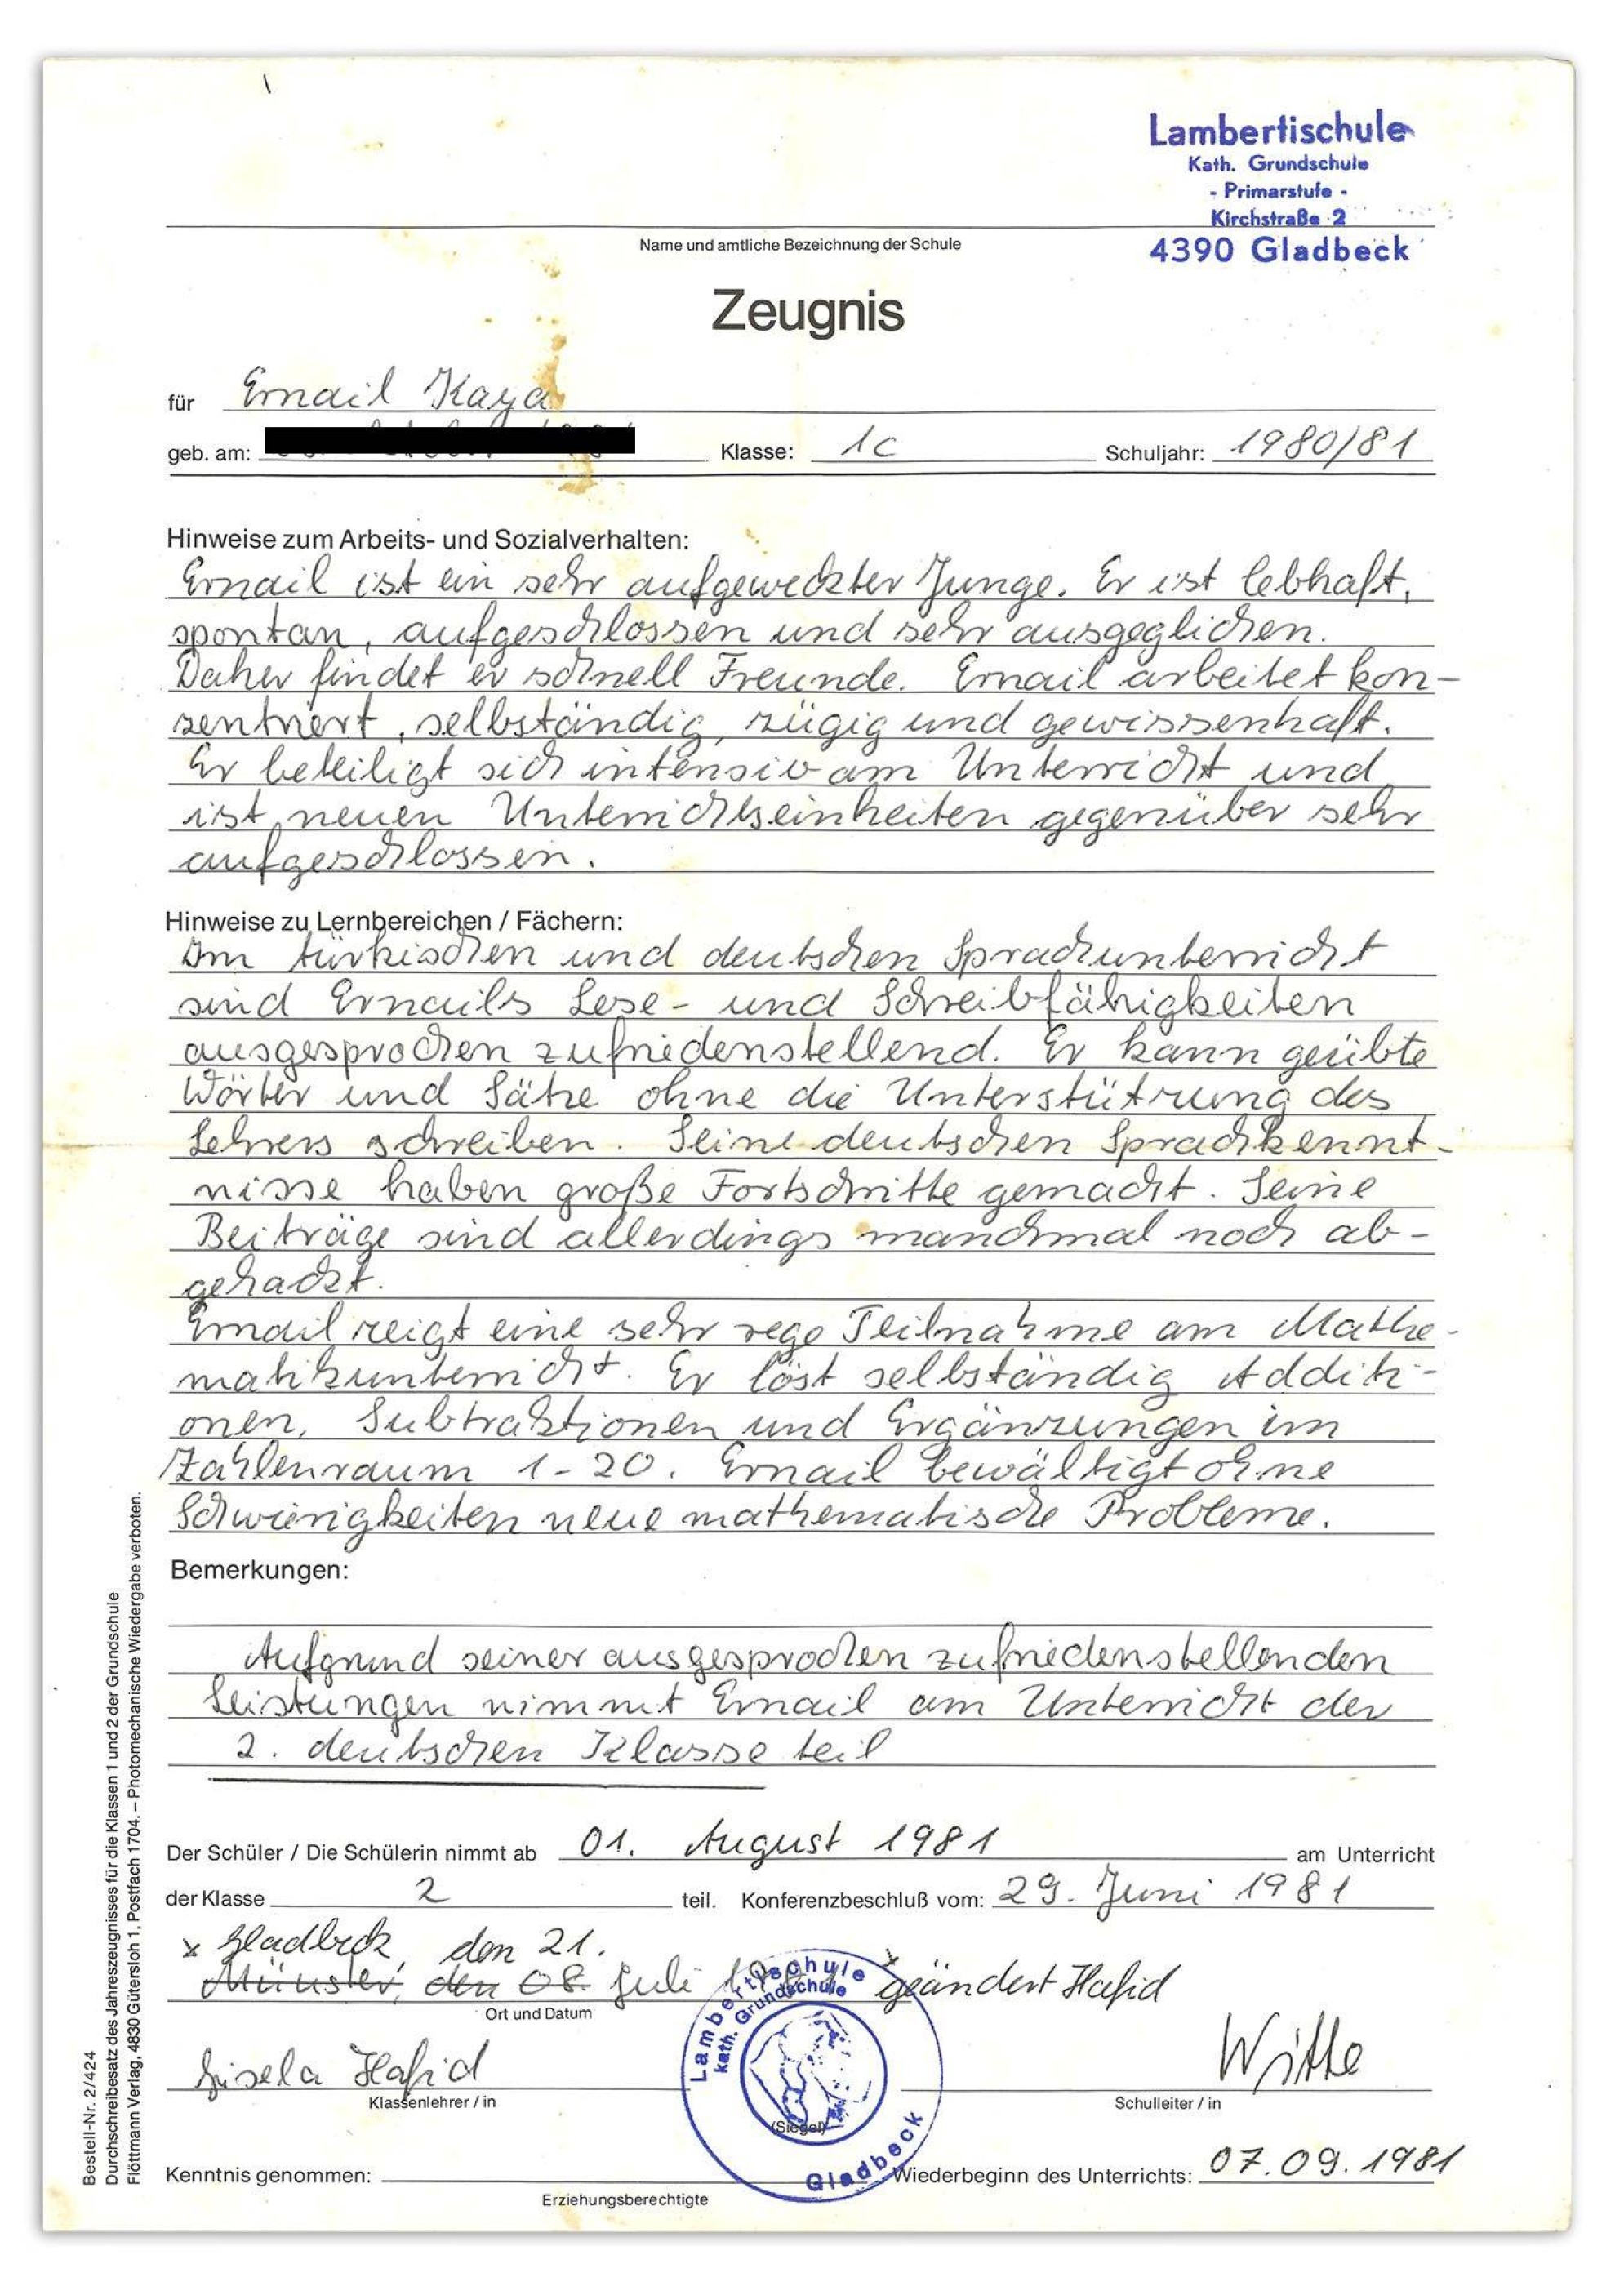 Lambertischule
Kath. Grundschule
- Primarstufe -
Kirchstraße 2
4390 Gladbeck
Name und amtliche Bezeichnung der Schule
Zeugnis
für Ernail Kaya
geb. am: Klasse: 1c Schuljahr: 1980/81
Hinweise zum Arbeits- und Sozialverhalten:
Ernail ist ein sehr aufgeweckter Junge. Er ist lebhaft,
spontan, aufgeschlossen und sehr ausgeglichen.
Daher findet er schnell Freunde. Ernail arbeitet kon-
zentriert, selbständig, zügig und gewissenhaft.
Er beteiligt sich intensiv am Unterricht und
ist neuen Unterrichtseinheiten gegenüber sehr
aufgeschlossen.
Hinweise zu Lernbereichen / Fächern:
Im türkischen und deutschen Sprachunterricht
sind Ernails Lese- und Schreibfähigkeiten
ausgesprochen zufriedenstellend. Er kann geübte
Wörter und Sätze ohne die Unterstützung des
Lehrers schreiben. Seine deutschen Sprachkennt-
nisse haben große Fortschritte gemacht. Seine
Beiträge sind allerdings manchmal noch ab-
gehackt.
Ernail zeigt eine sehr rege Teilnahme am Mathe-
matikunterricht. Er löst selbständig Additi-
onen, Subtraktionen und Ergänzungen im
Zahlenraum 1-20. Ernail bewältigt ohne
Schwierigkeiten neue mathematische Probleme.
Bemerkungen:
Aufgrund seiner ausgesprochen zufriedenstellenden
Leistungen nimmt Ernail am Unterricht der
2. deutschen Klasse teil
Der Schüler / Die Schülerin nimmt ab 01. August 1981 am Unterricht
der Klasse 2 teil. Konferenzbeschluß vom: 29. Juni 1981
x Gladbeck, den 21.
Münster, den 08. Juli 1981 x geändert Hafid
Ort und Datum
Lambertischule
kath. Grundschule
Gladbeck
(Siegel)
Gisela Hafid Witte
Klassenlehrer / in Schulleiter / in
Kenntnis genommen: Wiederbeginn des Unterrichts: 07.09.1981
Erziehungsberechtigte
Bestell-Nr. 2/424
Durchschreibesatz des Jahreszeugnisses für die Klassen 1 und 2 der Grundschule
Flöttmann Verlag, 4830 Gütersloh 1, Postfach 1704. – Photomechanische Wiedergabe verboten.